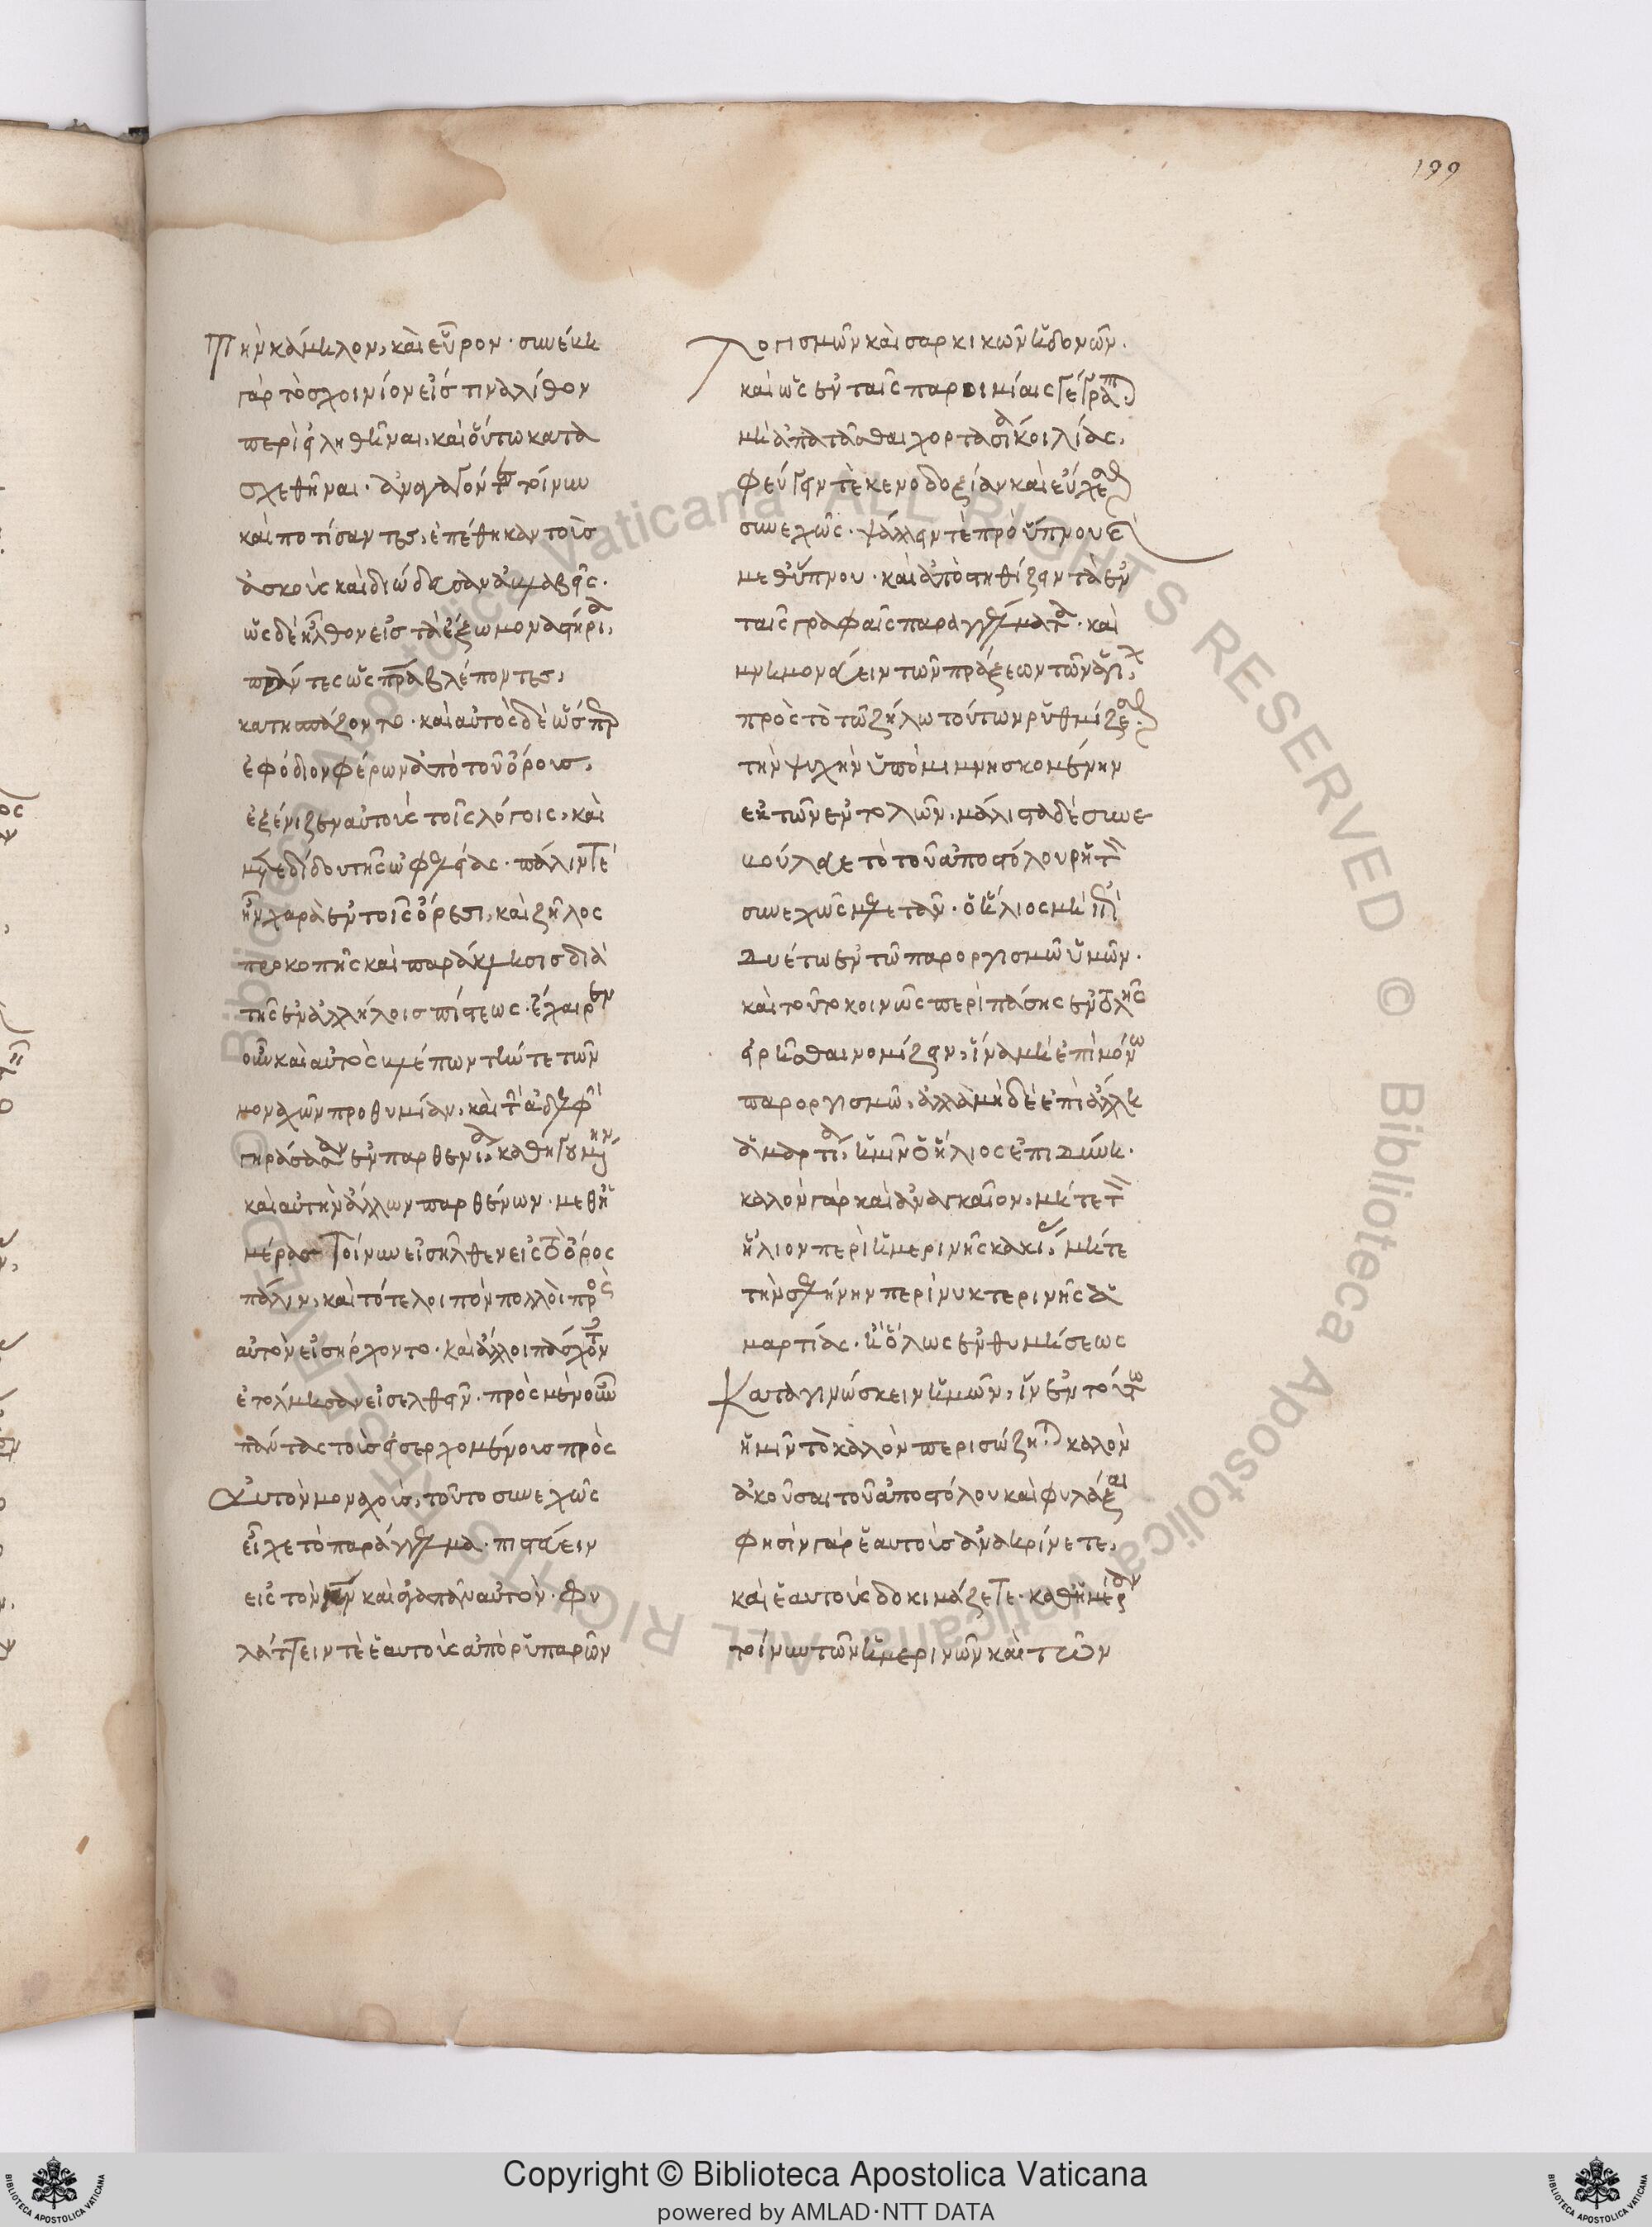 199
τὴν κάμηλον, καὶ εὗρον· συνέβη
γὰρ τὸ σχοινίον εἰς τινα λίθον
περιειληθῆναι, καὶ οὕτω κατα
σχεθῆναι· ἀναγαγόντες τοίνυν
καὶ ποτίσαντες, ἐπέθηκαν τοὺς
ἀσκοὺς καὶ διώδευσαν ἀβλαβεῖς·
ὡς δὲ ἦλθον εἰς τὰ ἔξω μοναστήρια,
πάντες ὡς πρα βλέποντες,
κατησπάζοντο· καὶ αὐτὸς δὲ ὥσπερ
ἐφόδιον φέρων ἀπὸ τοῦ ὄρους,
ἐξένιζεν αὐτοὺς τοῖς λόγοις, καὶ
μετεδίδου τῆς ὠφελείας· πάλιν τε
ἦν χαρὰ ἐν τοῖς ὄρεσι, καὶ ζῆλος
προκοπῆς καὶ παράκλησις διὰ
τῆς ἐν ἀλλήλοις πίστεως· ἔχαιρεν
οὖν καὶ αὐτὸς βλέπων τήν τε τῶν
μοναχῶν προθυμίαν, καὶ τὴν ἀδελφὴν
γηράσασαν ἐν παρθενίᾳ, καθηγουμένην
καὶ αὐτὴν ἄλλων παρθένων· μεθ' ἡ
μέρας τοίνυν εἰσῆλθεν εἰς τὸ ὄρος
πάλιν, καὶ τότε λοιπὸν πολλοὶ πρὸς
αὐτὸν εἰσήρχοντο· καὶ ἄλλοι πάσχοντες
ἐτόλμησαν εἰσελθεῖν· πρὸς μὲν οὖν
πάντας τοὺς εἰσερχομένους πρὸς
αὐτὸν μοναχούς, τοῦτο συνεχῶς
εἶχε τὸ παράγγελμα· πιστεύειν
εἰς τὸν κν καὶ ἀγαπᾶν αὐτόν· φυ
λάττειν τὲ ἑαυτοὺς ἀπὸ ῥυπαρῶν
λογισμῶν καὶ σαρκικῶν ἡδονῶν·
καὶ ὡς ἐν ταῖς παροιμίαις γέγραπται,
μὴ ἀπατᾶσθαι χορτασίᾳ κοιλίας,
φεύγειν τὲ κενοδοξίαν καὶ εὔχεσθαι
συνεχῶς· ψάλλειν τὲ πρὸ ὕπνου καὶ
μεθ' ὕπνου· καὶ ἀποστηθίζειν τὰ ἐν
ταῖς γραφαῖς παραγγέλματα· καὶ
μνημονεύειν τῶν πράξεων τῶν ἁγίων,
πρὸς τὸ τῷ ζήλῳ τούτων ῥυθμίζεσθαι
τὴν ψυχὴν ὑπομιμνησκομένην
ἐκ τῶν ἐντολῶν. μάλιστα δὲ συνε
βούλευε τὸ τοῦ ἀποστόλου ῥητὸν
συνεχῶς μελετᾶν· ὁ ἥλιος μὴ ἐπι
δυέτω ἐν τῷ παροργισμῷ ὑμῶν·
καὶ τοῦτο κοινῶς περὶ πάσης ἐντολῆς
εἰρῆσθαι νομίζειν, ἵνα μὴ ἐπὶ μόνῳ
παροργισμῷ, ἀλλὰ μηδὲ ἐπὶ ἄλλῃ
ἁμαρτίᾳ, ἡμῖν ὁ ἥλιος ἐπιδύῃ·
καλὸν γὰρ καὶ ἀναγκαῖον, μήτε τὸν
ἥλιον περὶ ἡμερινῆς κακίας, μήτε
τὴν σελήνην περὶ νυκτερινῆς ἁ
μαρτίας· ἢ ὅλως ἐνθυμήσεως
καταγινώσκειν ἡμῶν, ἵν' ἐν τούτῳ
ἡμῖν τὸ καλὸν περισώζηται καλὸν
ἀκοῦσαι τοῦ ἀποστόλου καὶ φυλάξαι
φησὶν γὰρ ἑαυτοὺς ἀνακρίνετε,
καὶ ἑαυτοὺς δοκιμάζετε· καθ' ἡμέραν
τοίνυν τῶν ἡμερινῶν καὶ τῶν
Copyright © Biblioteca Apostolica Vaticana
powered by AMLAD·NTT DATA
© Biblioteca Apostolica Vaticana ALL RIGHTS RESERVED © Biblioteca Apostolica Vaticana ALL RIGHTS RESERVED
BIBLIOTECA APOSTOLICA VATICANA
BIBLIOTECA APOSTOLICA VATICANA